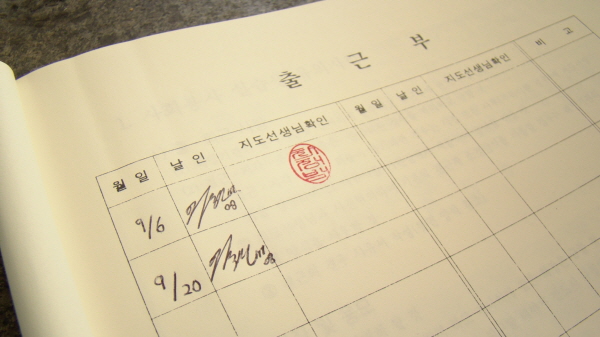 출 근 부
월 일 날 인 지도선생님확인 월 일 날 인 지도선생님확인 비 고
9/6
9/20